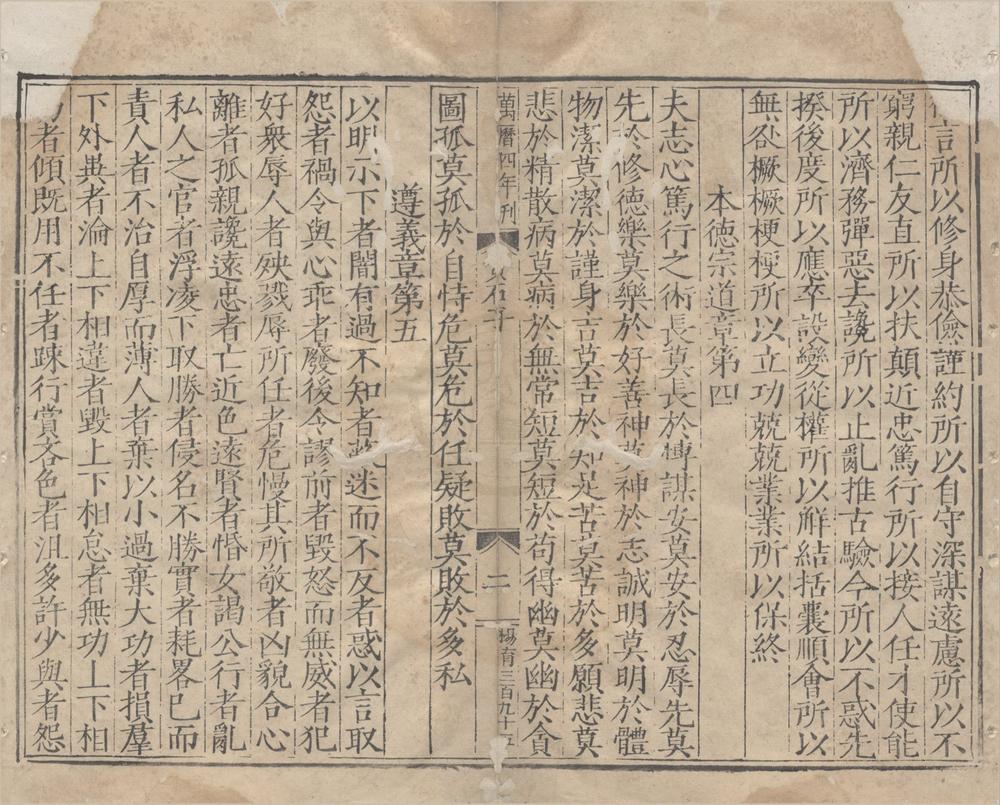 言所以修身恭儉謹約所以自守深謀遠慮所以不
窮親仁友直所以扶顛近忠篤行所以接人任才使能
所以濟務殫惡去讒所以止亂推古驗今所以不惑先
揆後度所以應卒設變從權所以解結括囊順會所以
無咎橛橛梗梗所以立功兢兢業業所以保終
本德宗道章第四
夫志心篤行之術長莫長於博謀安莫安於忍辱先莫
先於修德樂莫樂於好善神莫神於志誠明莫明於體
物潔莫潔於謹身吉莫吉於知足苦莫苦於多願悲莫
悲於精散病莫病於無常短莫短於苟得幽莫幽於貪
萬曆四年刊
二
楊育三百九十五
圖孤莫孤於自恃危莫危於任疑敗莫敗於多私
遵義章第五
以明示下者闇有過不知者蔽迷而不友者惑以言取
怨者禍令與心乖者廢後令謬前者毀怒而無威者犯
好衆辱人者殃戮辱所任者危慢其所敬者凶貌合心
離者孤親讒遠忠者亡近色遠賢者惛女謁公行者亂
私人之官者浮凌下取勝者侵名不勝實者耗畧己而
責人者不治自厚而薄人者棄以小過棄大功者損羣
下外異者淪上下相違者毀上下相怠者無功上下相
者傾既用不任者踈行賞吝色者沮多許少與者怨